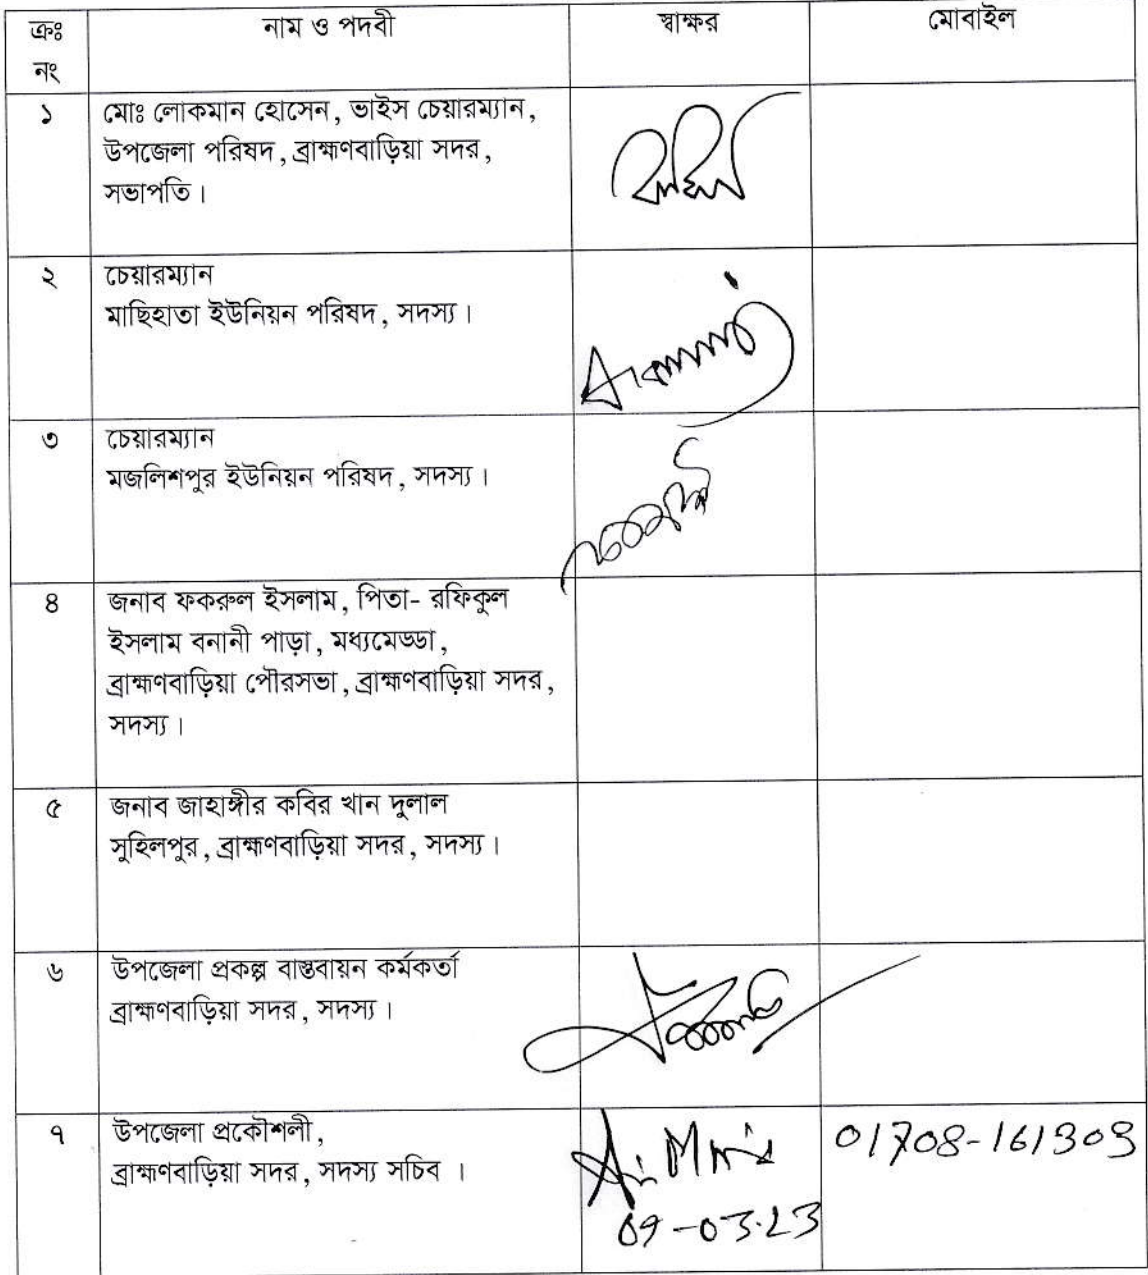 ক্রঃ নং	নাম ও পদবী	স্বাক্ষর	মোবাইল
১	মোঃ লোকমান হোসেন, ভাইস চেয়ারম্যান,
উপজেলা পরিষদ, ব্রাহ্মণবাড়িয়া সদর,
সভাপতি।
২	চেয়ারম্যান
মাছিহাতা ইউনিয়ন পরিষদ, সদস্য।
৩	চেয়ারম্যান
মজলিশপুর ইউনিয়ন পরিষদ, সদস্য।
৪	জনাব ফকরুল ইসলাম, পিতা- রফিকুল
ইসলাম বনানী পাড়া, মধ্যমেড্ডা,
ব্রাহ্মণবাড়িয়া পৌরসভা, ব্রাহ্মণবাড়িয়া সদর,
সদস্য।
৫	জনাব জাহাঙ্গীর কবির খান দুলাল
সুহিলপুর, ব্রাহ্মণবাড়িয়া সদর, সদস্য।
৬	উপজেলা প্রকল্প বাস্তবায়ন কর্মকর্তা
ব্রাহ্মণবাড়িয়া সদর, সদস্য।
৭	উপজেলা প্রকৌশলী,	01708-161303
ব্রাহ্মণবাড়িয়া সদর, সদস্য সচিব ।
09-03-23